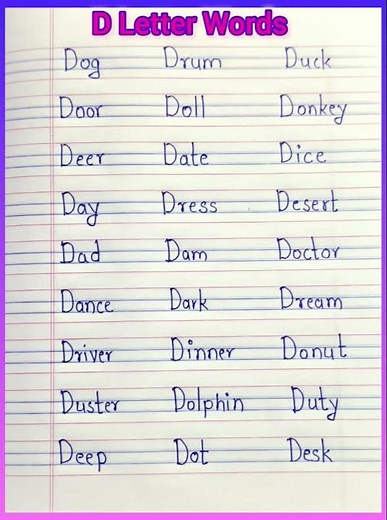 D Letter Words
Dog Drum Duck
Door Doll Donkey
Deer Date Dice
Day Dress Desert
Dad Dam Doctor
Dance Dark Dream
Driver Dinner Donut
Duster Dolphin Duty
Deep Dot Desk